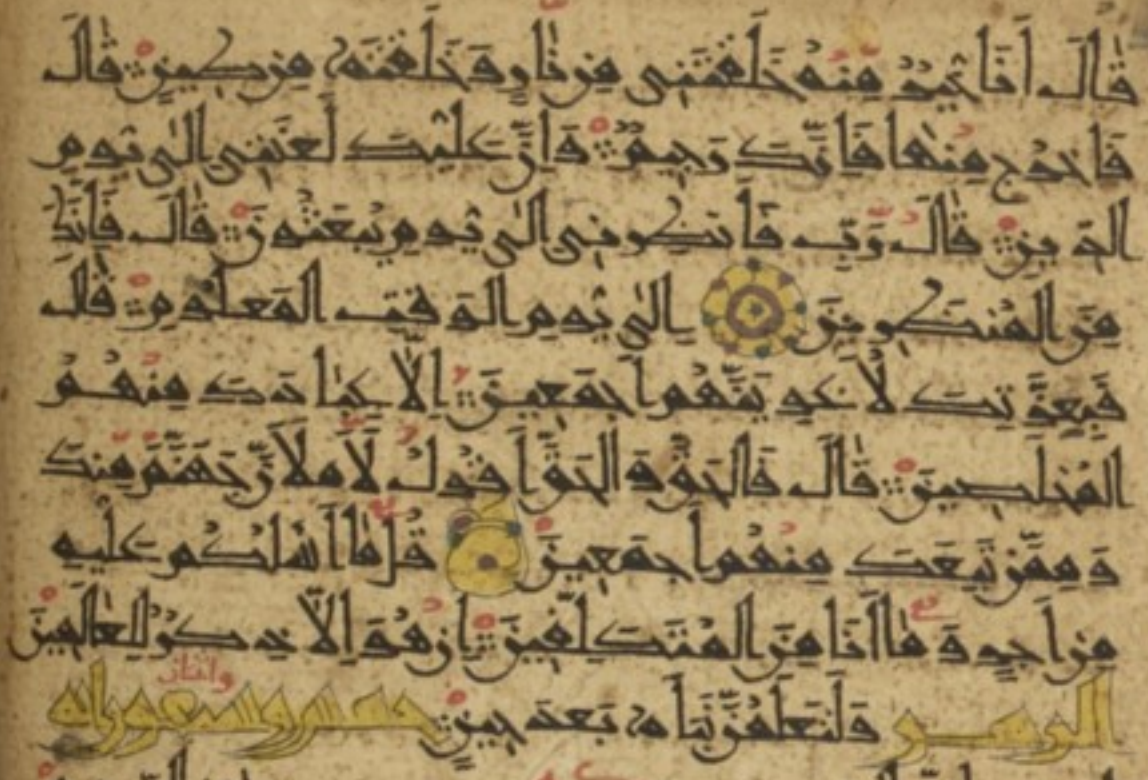 قَالَ أَنَا خَيْرٌ مِنْهُ خَلَقْتَنِى مِن نَّارٍ وَخَلَقْتَهُ مِن طِينٍ قَالَ
فَاخْرُجْ مِنْهَا فَإِنَّكَ رَجِيمٌ وَإِنَّ عَلَيْكَ لَعْنَتِى إِلَى يَوْمِ
الدِّينِ قَالَ رَبِّ فَأَنظِرْنِى إِلَى يَوْمِ يُبْعَثُونَ قَالَ فَإِنَّكَ
مِنَ الْمُنظَرِينَ إِلَى يَوْمِ الْوَقْتِ الْمَعْلُومِ قَالَ
فَبِعِزَّتِكَ لَأُغْوِيَنَّهُمْ أَجْمَعِينَ إِلَّا عِبَادَكَ مِنْهُمُ
الْمُخْلَصِينَ قَالَ فَالْحَقُّ وَالْحَقَّ أَقُولُ لَأَمْلَأَنَّ جَهَنَّمَ مِنكَ
وَمِمَّن تَبِعَكَ مِنْهُمْ أَجْمَعِينَ قُلْ مَا أَسْأَلُكُمْ عَلَيْهِ
مِنْ أَجْرٍ وَمَا أَنَا مِنَ الْمُتَكَلِّفِينَ إِنْ هُوَ إِلَّا ذِكْرٌ لِّلْعَالَمِينَ
واثنان
الزمر وَلَتَعْلَمُنَّ نَبَأَهُ بَعْدَ حِينٍ خمس وسبعون اية